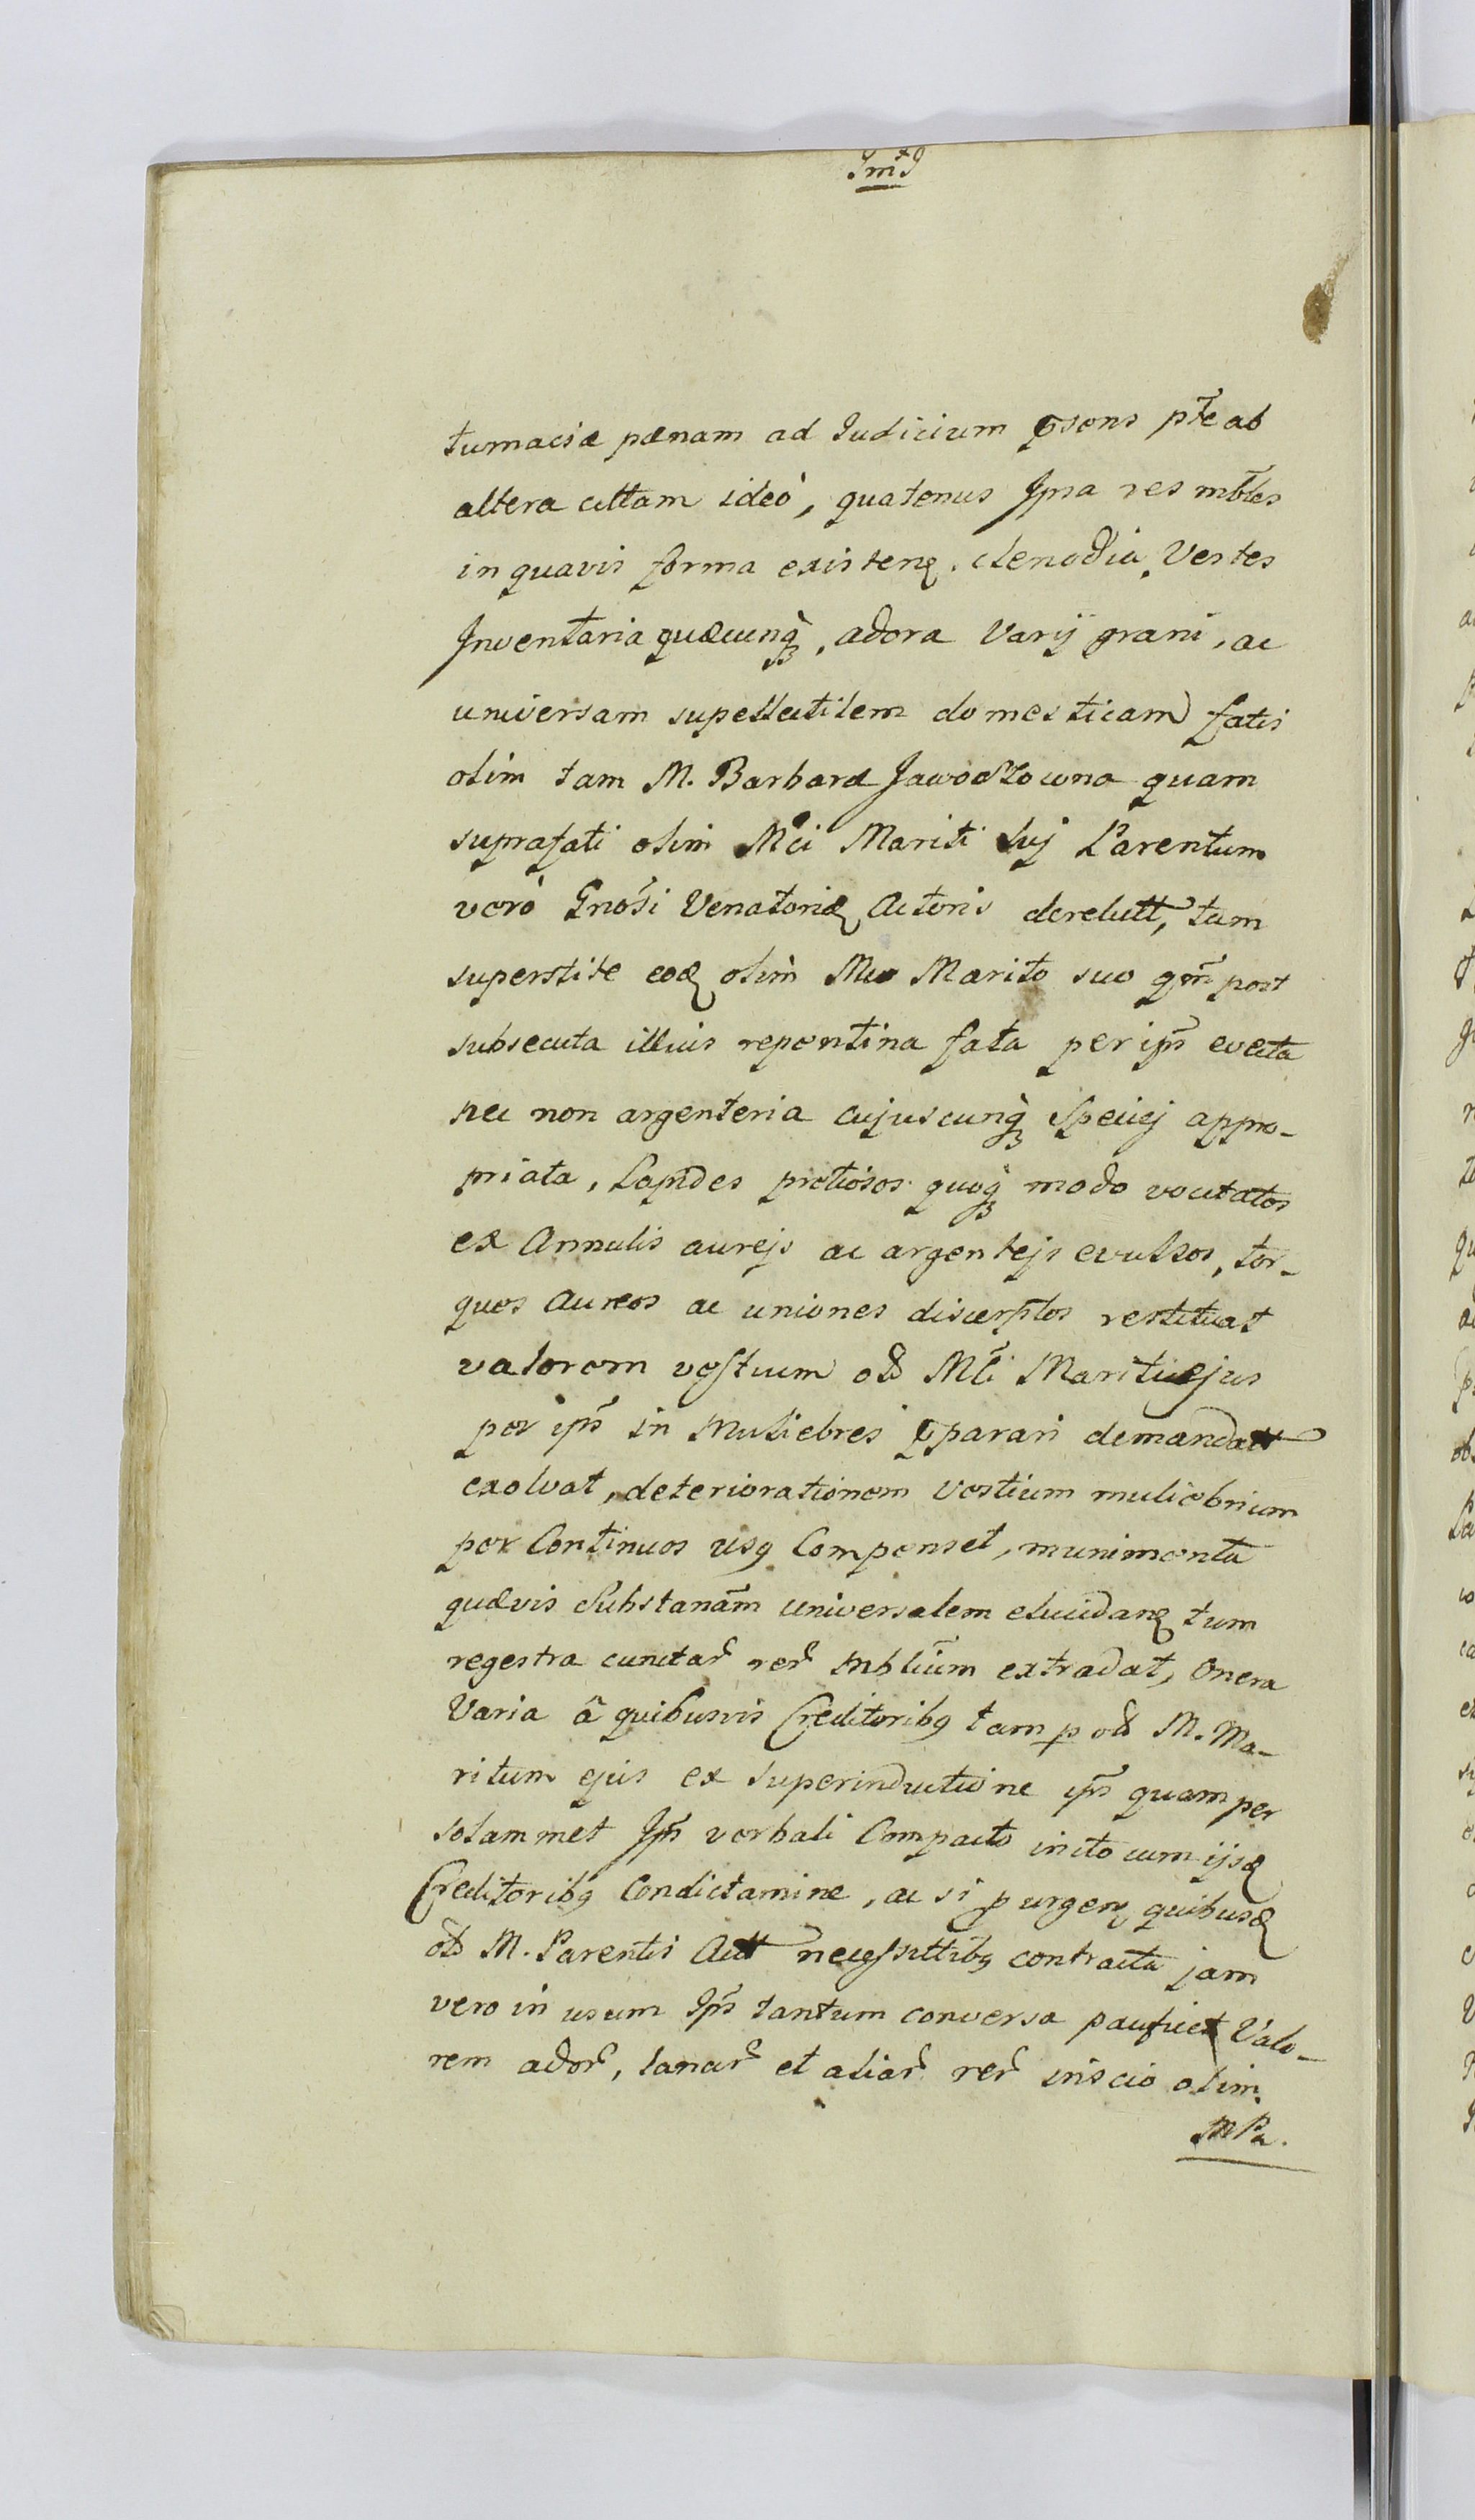 JmJ
tumaciæ pænam ad Judicium psens pte ab
altera cittam ideò, quatenus Ipsa res mbles
in quavis forma existen, clenodia, Vestes
Inventaria quæcunq, adora Varij grani, ac
universam supellectilem domesticam fatis
olim tam M. Barbaræ Jawodzowna quam
suprafati olim Mci Mariti sui Parentum
verò Gnosi Venatoris Actoris derelutt, tum
superstite eod olim Mco Marito suo qm post
subsecuta illius repentina fata per ips evecta
nec non argenteria cujuscunq speciej appro-
priata, Lapides pretiosos quoq modo vocitatos
ex Annulis aurejs ac argentejs evulsos, tor-
ques Aureos ac uniones discerptos restituat
valorem vestium old Mci Mariti ejus
per ips in Muliebres pparari demandatt
exolvat, deteriorationem Vestium muliebrium
per Continuos usq Compenset, munimenta
quævis Substanam universalem elucidan tum
regestra cunctar rer mblium extradat, Onera
Varia â quibusvis Creditoribq tam p old M. Ma-
ritum ejus ex superinductione ips quam per
solammet Ips verbali Compacto inito cum ijsd
Creditoribq Condictamine, ac si p urgen quibusd
old M. Parentis Actt necessittibq contracta jam
vero in usum Ips tantum conversa pacificet Valo-
rem ador, lanar et aliar rer inscio olim
MPa.